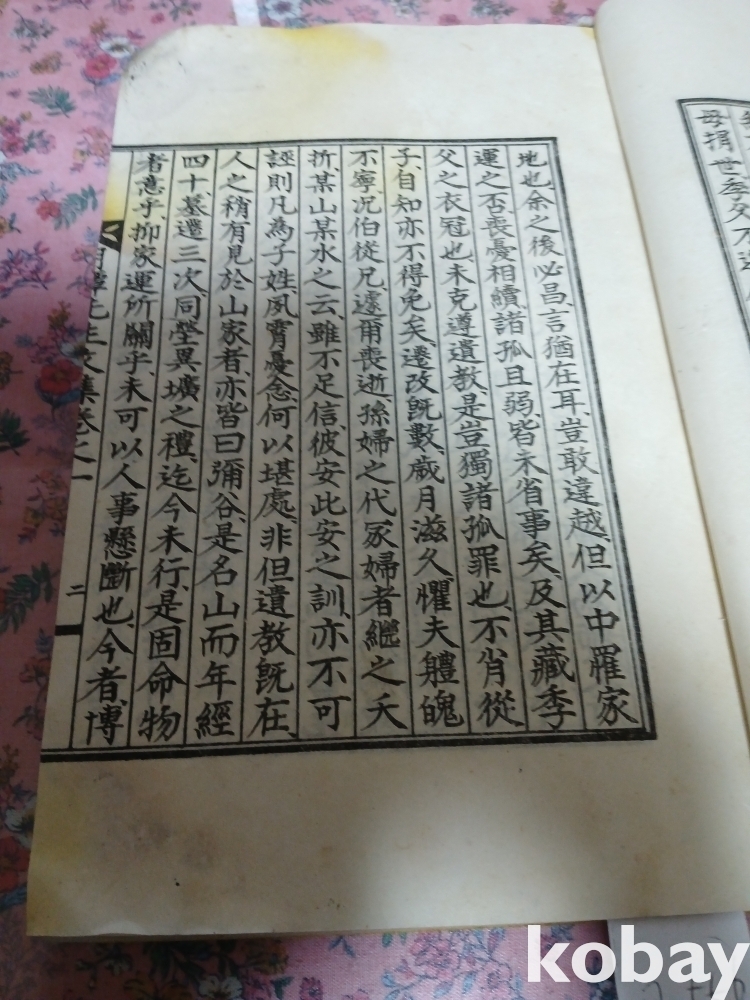 母捐世季父不
地也、余之後必昌、言猶在耳、豈敢違越、但以中罹家
運之否、喪憂相續、諸孤且弱、皆未省事矣、及其藏季
父之衣冠也、未克遵遺教、是豈獨諸孤罪也、不肖從
子、自知亦不得免矣、遷改既數、歲月滋久、懼夫軆魄
不寧、況伯從兄、遽爾喪逝、孫婦之代冢婦者、繼之夭
折、某山某水之云、雖不足信、彼安此安之訓、亦不可
誣、則凡為子姓、夙霄憂念、何以堪處、非但遺教既在、
人之稍有見於山家者、亦皆曰彌谷、是名山而年經
四十、墓遷三次、同塋異壙之禮、迄今未行、是固命物
者意乎、抑家運所關乎、未可以人事懸斷也、今者、博
先生文集卷之一
二
kobay